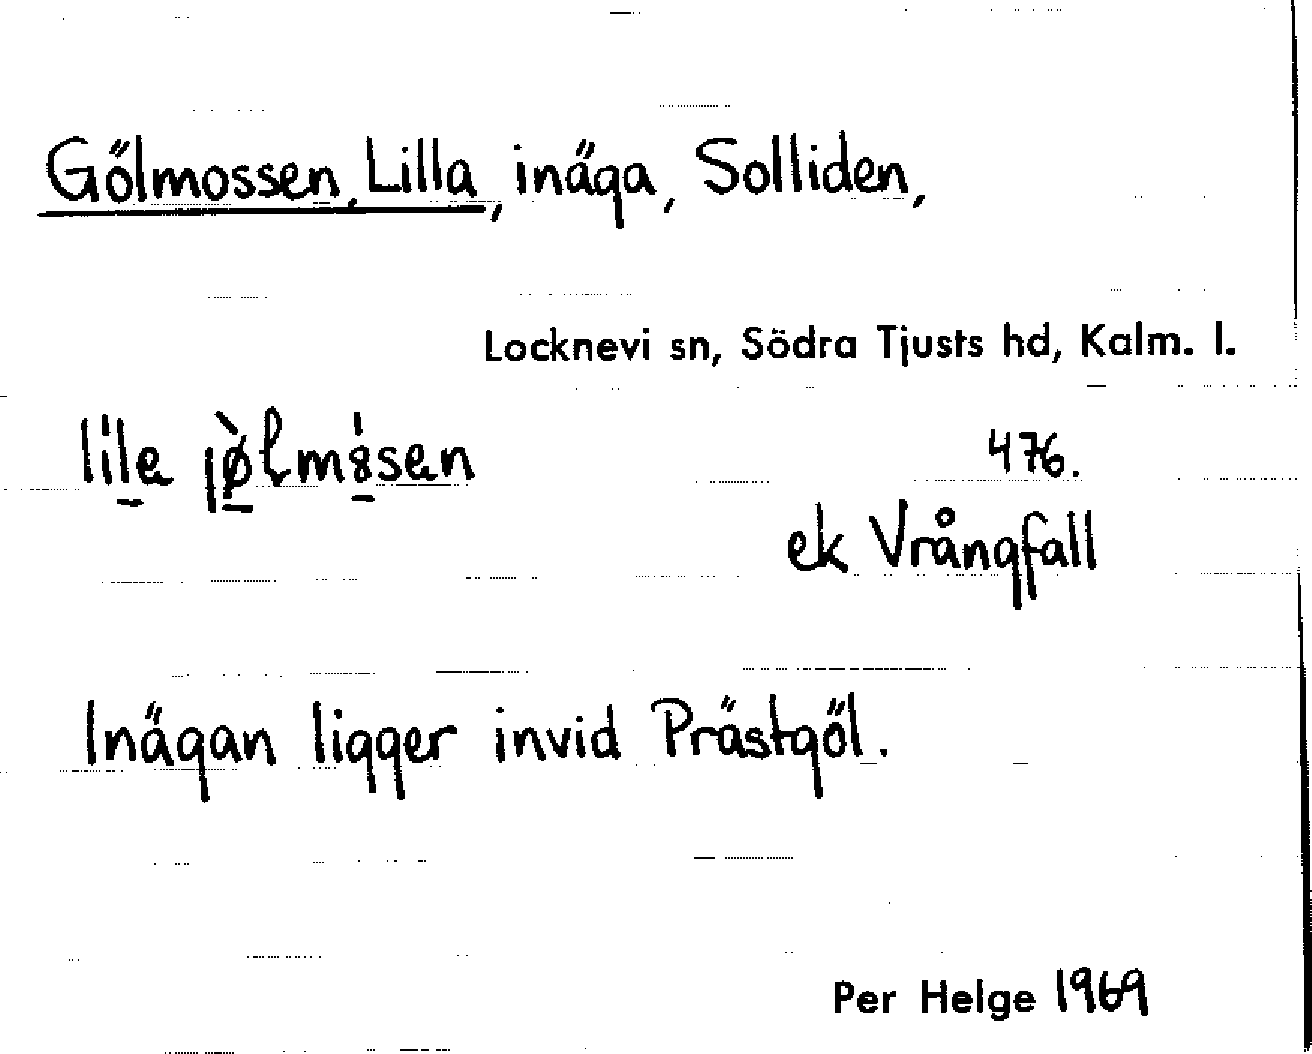 Gölmossen, Lilla, inäga, Solliden,
Locknevi sn, Södra Tjusts hd, Kalm. l.
476.
ek Vrångfall
Inägan ligger invid Prästgöl.
Per Helge 1969